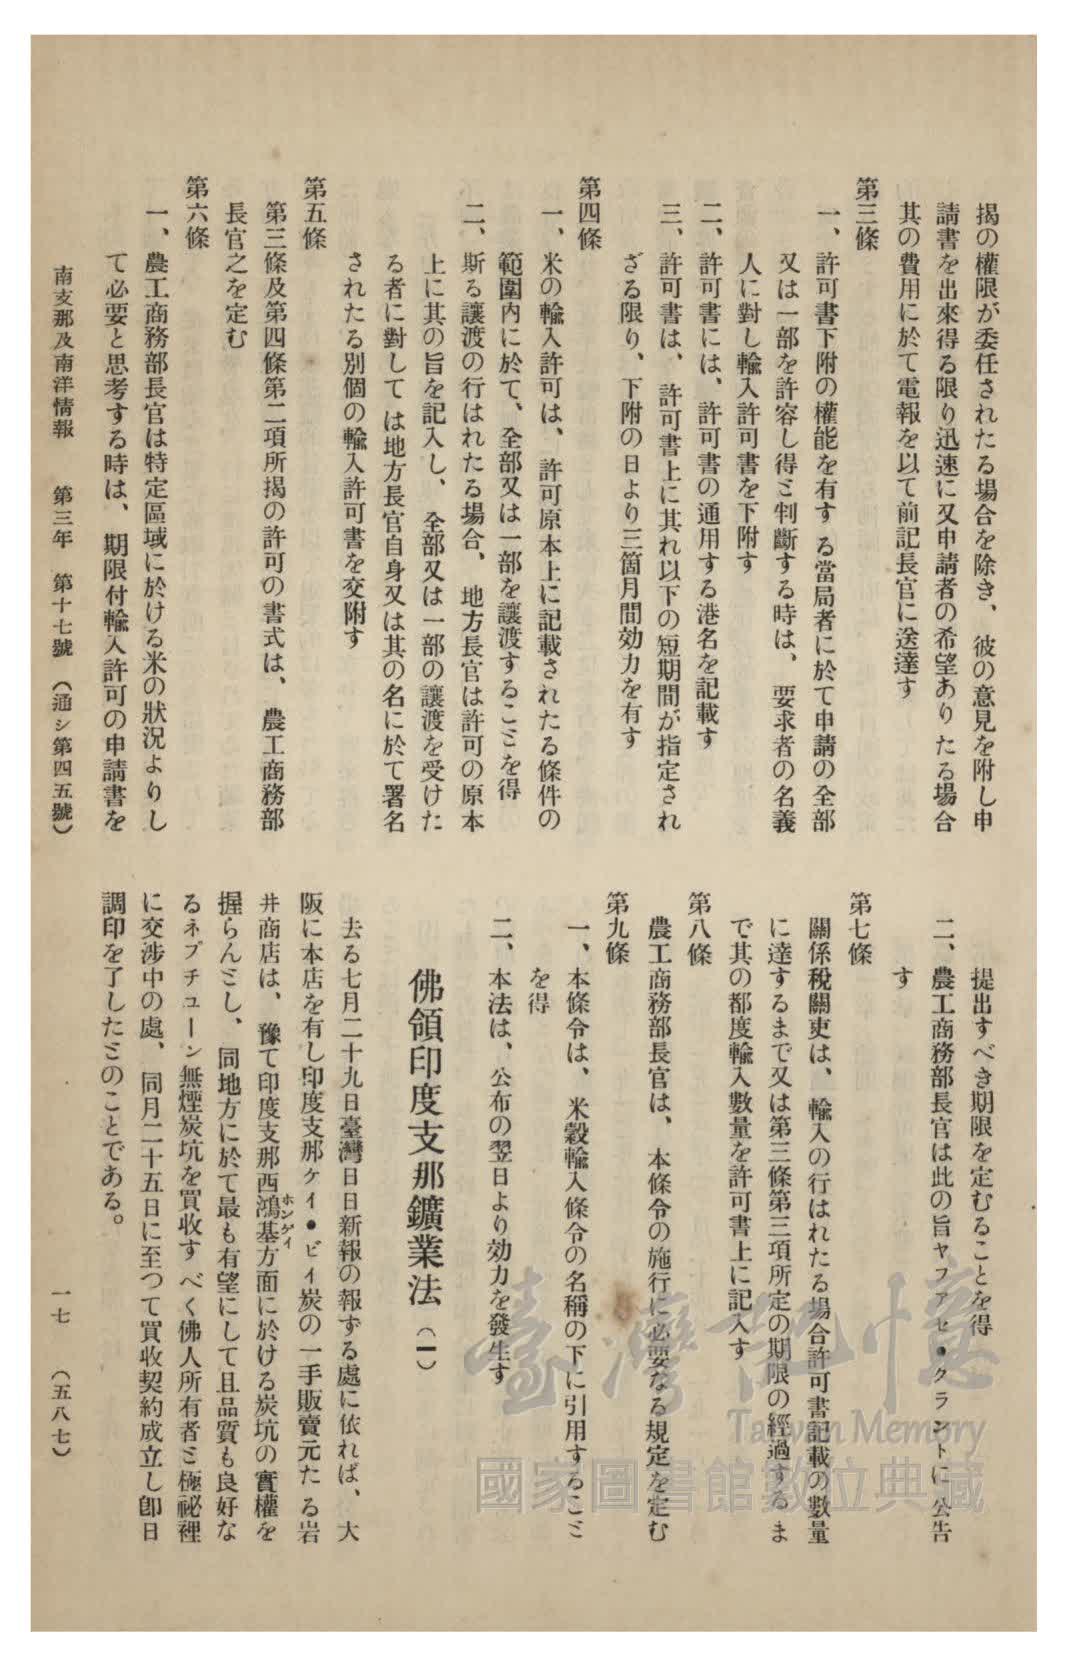 揭の權限が委任されたる場合を除き、彼の意見を附し申
請書を出來得る限り迅速に又申請者の希望ありたる場合
其の費用に於て電報を以て前記長官に送達す
第三條
一、許可書下附の權能を有する當局者に於て申請の全部
又は一部を許容し得ミ判斷する時は、要求者の名義
人に對し輸入許可書を下附す
二、許可書には、許可書の通用する港名を記載す
三、許可書は、許可書上に其れ以下の短期間が指定され
ざる限り、下附の日より三箇月間効力を有す
第四條
一、米の輸入許可は、許可原本上に記載されたる條件の
範圍內に於て、全部又は一部を讓渡するこミを得
二、斯る讓渡の行はれたる場合、地方長官は許可の原本
上に其の旨を記入し、全部又は一部の讓渡を受けた
る者に對しては地方長官自身又は其の名に於て署名
されたる別個の輸入許可書を交附す
第五條
第三條及第四條第二項所揭の許可の書式は、農工商務部
長官之を定む
第六條
一、農工商務部長官は特定區域に於ける米の狀況よりし
て必要と思考する時は、期限付輸入許可の申請書を
提出すべき期限を定むることを得
二、農工商務部長官は此の旨ヤフアセ•クラントに公告
す
第七條
關係稅關吏は、輸入の行はれたる場合許可書記載の數量
に達するまで又は第三條第三項所定の期限の經過するま
で其の都度輸入數量を許可書上に記入す
第八條
農工商務部長官は、本條令の施行に必要なる規定を定む
第九條
一、本條令は、米穀輸入條令の名稱の下に引用するこミ
を得
二、本法は、公布の翌日より効力を發生す
佛領印度支那鑛業法（一）
去る七月二十九日臺灣日日新報の報ずる處に依れば、大
阪に本店を有し印度支那ケイ•ビイ炭の一手販賣元たる岩
井商店は、豫て印度支那西鴻基方面に於ける炭坑の實權を
ホンゲイ
握らんミし、同地方に於て最も有望にして且品質も良好な
るネプチューン無煙炭坑を買收すべく佛人所有者ミ極祕裡
に交涉中の處、同月二十五日に至つて買收契約成立し卽日
調印を了したミのことである。
南支那及南洋情報 第三年 第十七號（通シ第四五號） 一七 （五八七）
臺灣記憶
Taiwan Memory
國家圖書館數位典藏